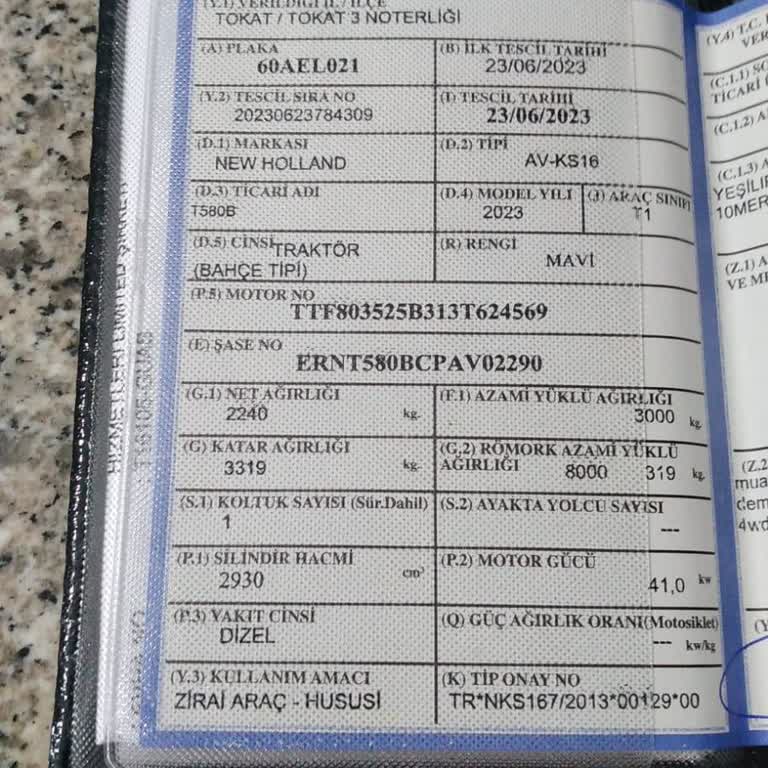 (Y.1) VERİLDİĞİ İL / İLÇE
TOKAT / TOKAT 3 NOTERLİĞİ
(A) PLAKA
60AEL021
(B) İLK TESCİL TARİHİ
23/06/2023
(Y.2) TESCİL SIRA NO
20230623784309
(I) TESCİL TARİHİ
23/06/2023
(D.1) MARKASI
NEW HOLLAND
(D.2) TİPİ
AV-KS16
(D.3) TİCARİ ADI
T580B
(D.4) MODEL YILI
2023
(J) ARAÇ SINIFI
T1
(D.5) CİNSİ TRAKTÖR
(BAHÇE TİPİ)
(R) RENGİ
MAVİ
(P.5) MOTOR NO
TTF803525B313T624569
(E) ŞASE NO
ERNT580BCPAV02290
(G.1) NET AĞIRLIĞI
2240 kg.
(F.1) AZAMİ YÜKLÜ AĞIRLIĞI
3000 kg.
(G) KATAR AĞIRLIĞI
3319 kg.
(G.2) RÖMORK AZAMİ YÜKLÜ
AĞIRLIĞI 8000 319 kg.
(S.1) KOLTUK SAYISI (Sür.Dahil)
1
(S.2) AYAKTA YOLCU SAYISI
---
(P.1) SİLİNDİR HACMİ
2930 cm³
(P.2) MOTOR GÜCÜ
41,0 kw
(P.3) YAKIT CİNSİ
DİZEL
(Q) GÜÇ AĞIRLIK ORANI(Motosiklet)
--- kw/kg
(Y.3) KULLANIM AMACI
ZİRAİ ARAÇ - HUSUSİ
(K) TİP ONAY NO
TR*NKS167/2013*00129*00
(Y.4) T.C.
(C.1.1) SO
TİCARİ
(C.1.2) A
(C.1.3) A
YEŞİLI
10MER
(Z.1) A
VE M
(Z.2
mua
dem
4wd
(Y